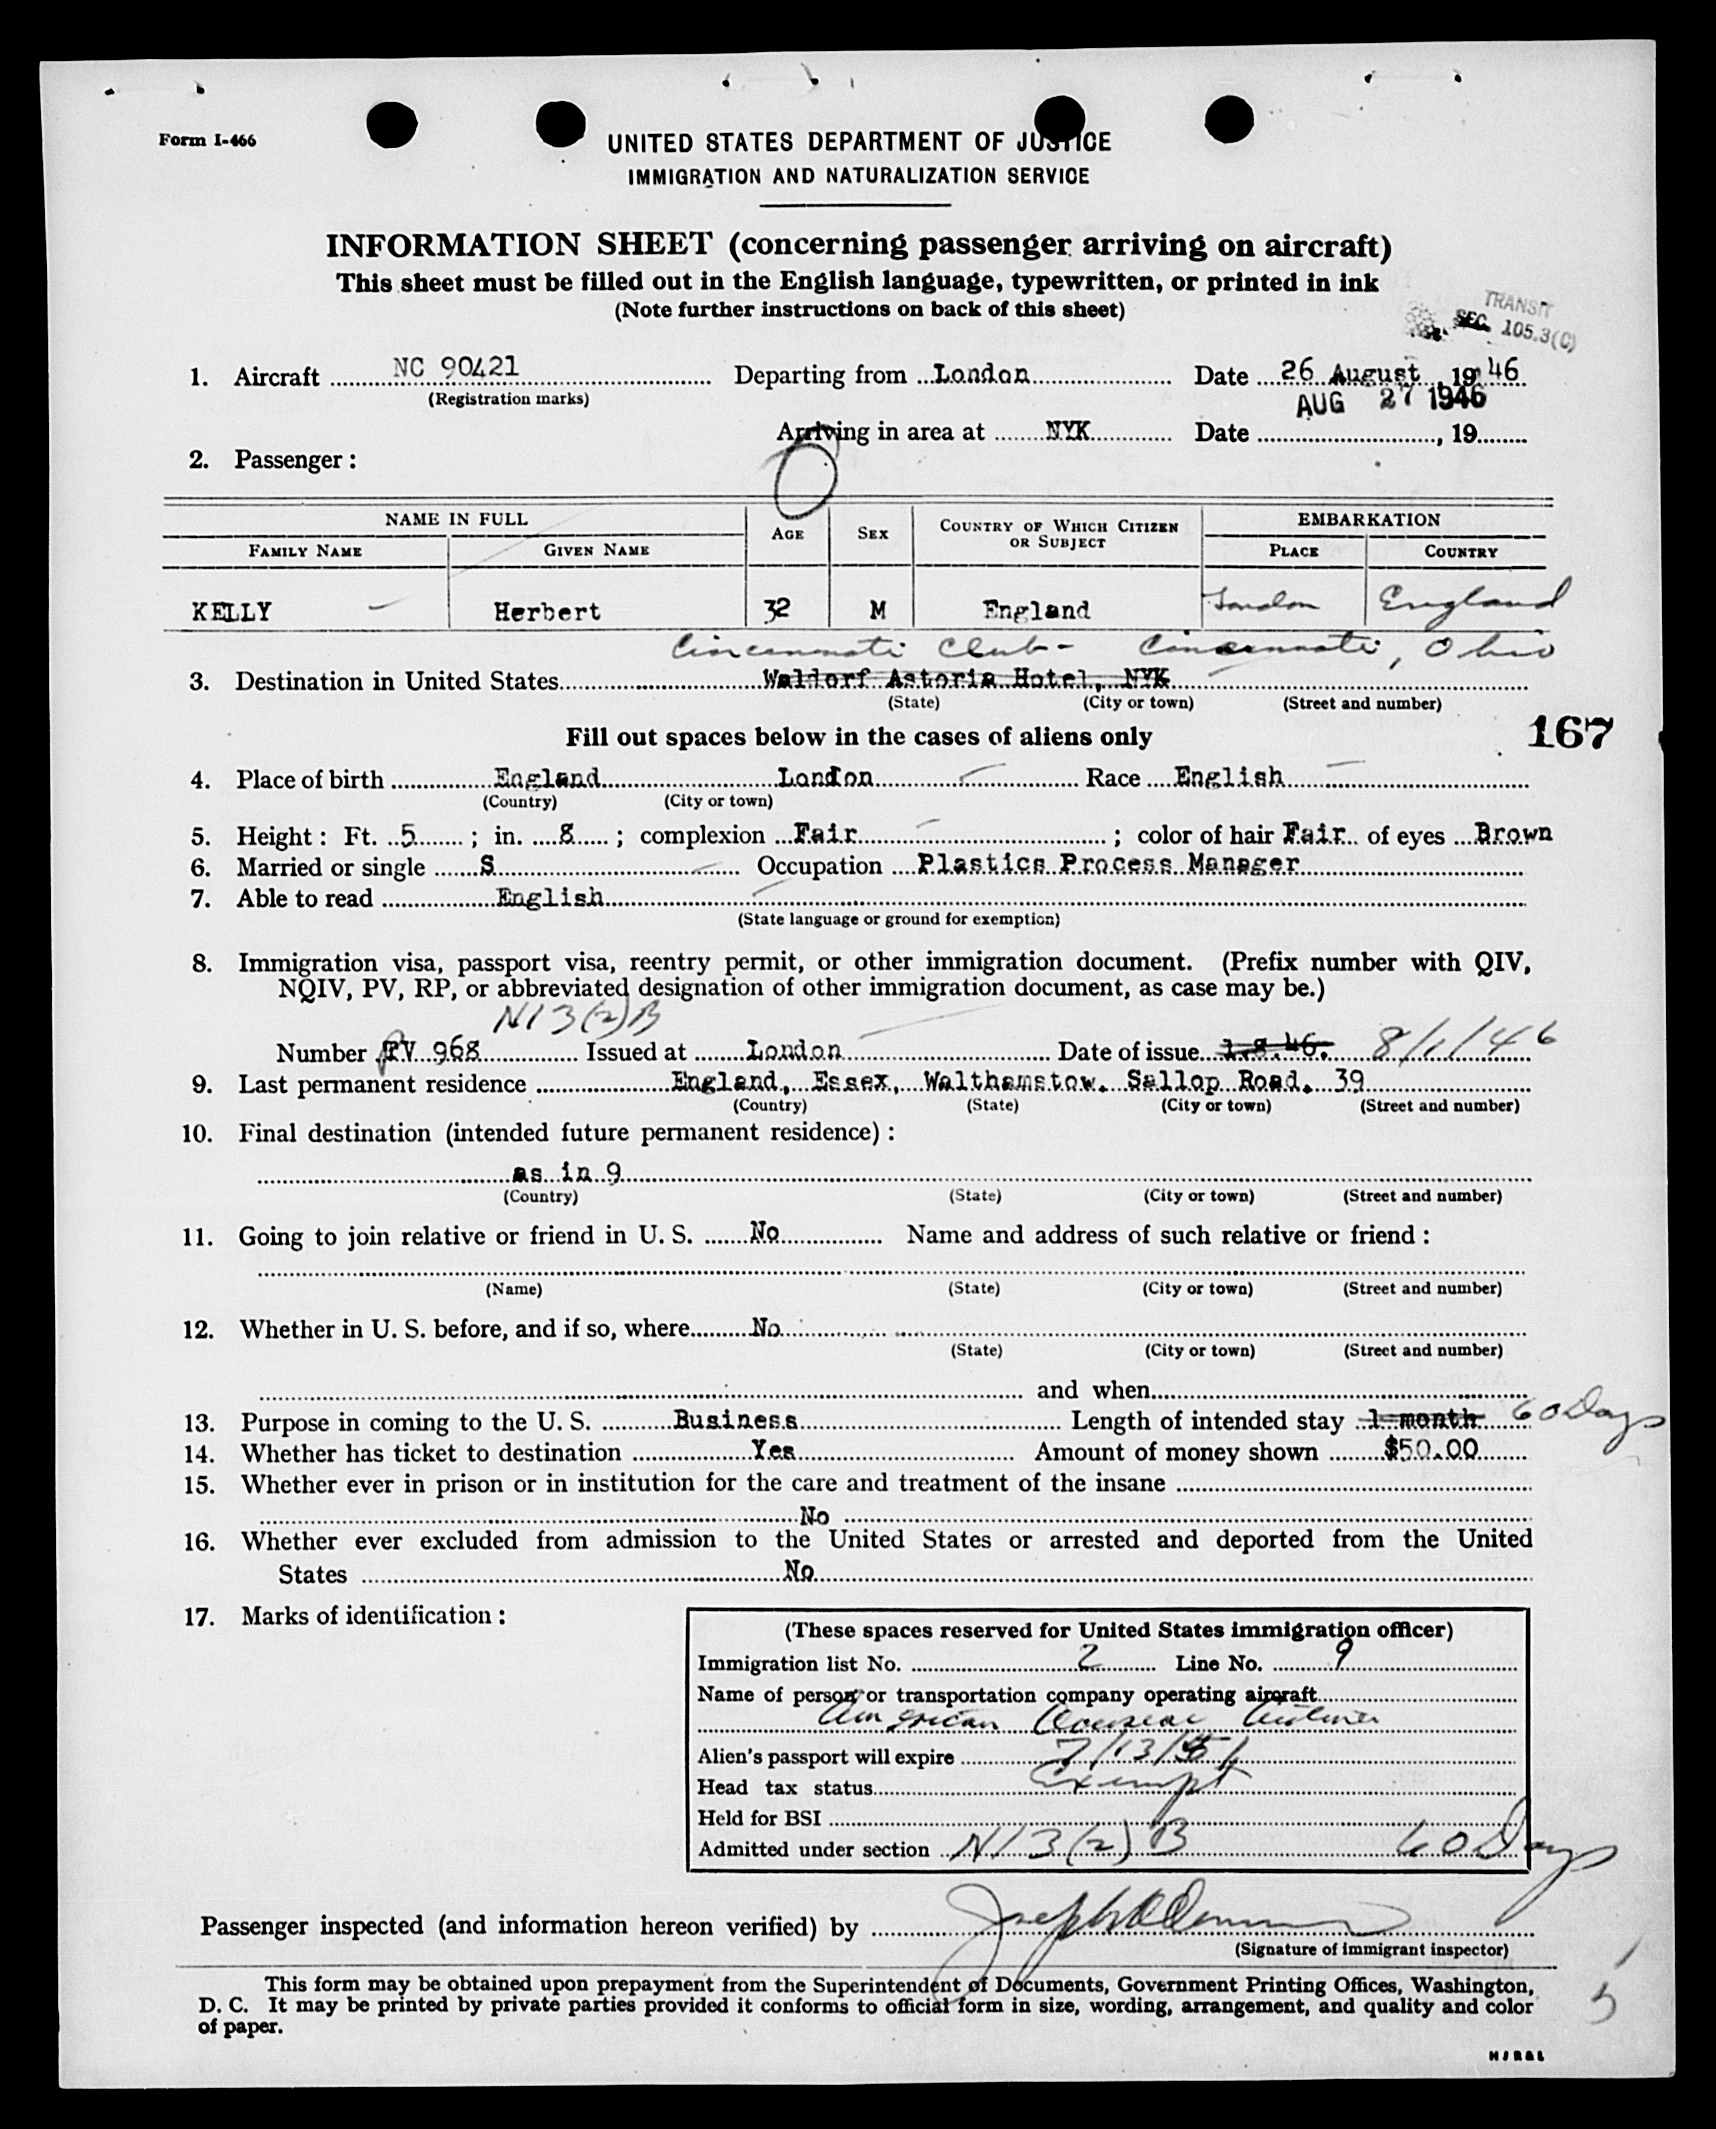 Form I-466
UNITED STATES DEPARTMENT OF JUSTICE
IMMIGRATION AND NATURALIZATION SERVICE
INFORMATION SHEET (concerning passenger arriving on aircraft)
This sheet must be filled out in the English language, typewritten, or printed in ink
(Note further instructions on back of this sheet)
TRANSIT
SEC. 105.3(C)
1. Aircraft NC 90421 Departing from London Date 26 August, 1946
(Registration marks)
AUG 27 1946
Arriving in area at NYK Date , 19
2. Passenger:
NAME IN FULL AGE SEX COUNTRY OF WHICH CITIZEN OR SUBJECT EMBARKATION
FAMILY NAME GIVEN NAME PLACE COUNTRY
KELLY Herbert 32 M England London England
Cincinnati Club - Cincinnati, Ohio
3. Destination in United States Waldorf Astoria Hotel, NYK
(State) (City or town) (Street and number)
167
Fill out spaces below in the cases of aliens only
4. Place of birth England London Race English
(Country) (City or town)
5. Height: Ft. 5; in. 8; complexion Fair; color of hair Fair of eyes Brown
6. Married or single S Occupation Plastics Process Manager
7. Able to read English
(State language or ground for exemption)
8. Immigration visa, passport visa, reentry permit, or other immigration document. (Prefix number with QIV,
NQIV, PV, RP, or abbreviated designation of other immigration document, as case may be.)
N13(2)B
Number PV 968 Issued at London Date of issue 1.8.46. 8/1/46
9. Last permanent residence England, Essex, Walthamstow. Sallop Road. 39
(Country) (State) (City or town) (Street and number)
10. Final destination (intended future permanent residence):
as in 9
(Country) (State) (City or town) (Street and number)
11. Going to join relative or friend in U. S. No Name and address of such relative or friend:
(Name) (State) (City or town) (Street and number)
12. Whether in U. S. before, and if so, where No
(State) (City or town) (Street and number)
and when
13. Purpose in coming to the U. S. Business Length of intended stay 1 month 60 Days
14. Whether has ticket to destination Yes Amount of money shown $50.00
15. Whether ever in prison or in institution for the care and treatment of the insane
No
16. Whether ever excluded from admission to the United States or arrested and deported from the United
States No
17. Marks of identification:
(These spaces reserved for United States immigration officer)
Immigration list No. 2 Line No. 9
Name of person or transportation company operating aircraft
American Overseas Airlines
Alien's passport will expire 7/13/51
Head tax status Exempt
Held for BSI
Admitted under section N13(2)B 60 Days
Passenger inspected (and information hereon verified) by
(Signature of immigrant inspector)
This form may be obtained upon prepayment from the Superintendent of Documents, Government Printing Offices, Washington,
D. C. It may be printed by private parties provided it conforms to official form in size, wording, arrangement, and quality and color
of paper.
5